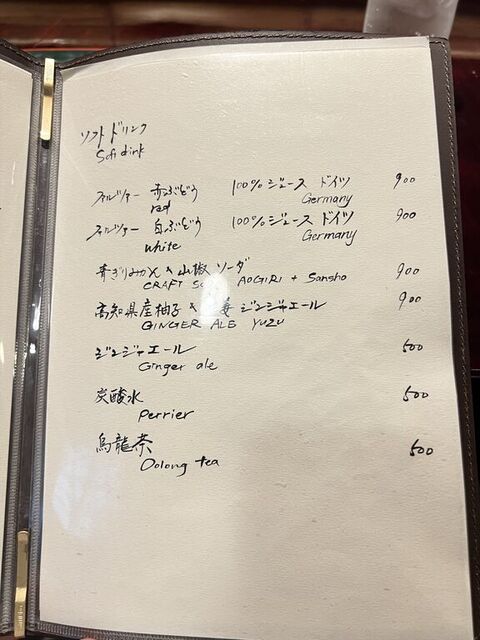 ソフトドリンク
Soft dink
フォルツァー 赤ぶどう 100%ジュース ドイツ 900
rad Germany
フォルツァー 白ぶどう 100%ジュース ドイツ 900
white Germany
青ぎりみかん × 山椒ソーダ 900
CRAFT AOGIRI + Sansho
高知県産柚子 × ジンジャエール 900
GINGER ALE YUZU
ジンジャエール 500
Ginger ale
炭酸水 500
Perrier
烏龍茶 500
Oolong tea